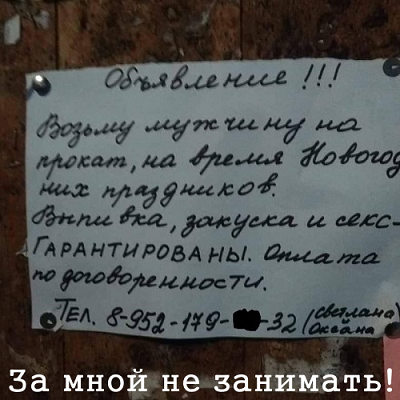 Объявление!!!
Возьму мужчину на
прокат, на время Новогод
них праздников.
Выпивка, закуска и секс-
ГАРАНТИРОВАНЫ. Оплата
по договоренности.
Тел. 8-952-179- -32 (светлана)
Оксана
За мной не занимать!